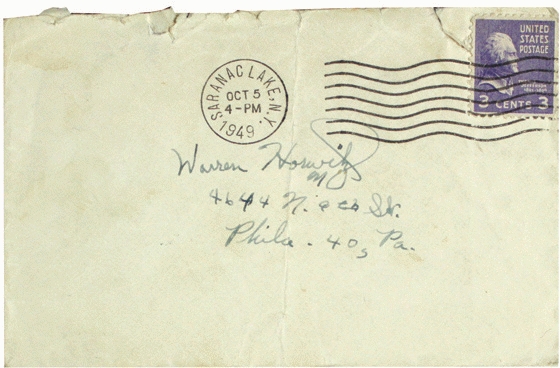 UNITED
STATES
POSTAGE
3 CENTS 3
SARANAC LAKE, N.Y.
OCT 5
4-PM
1949
Warren
4644 N. St.
Phila. 40, Pa.